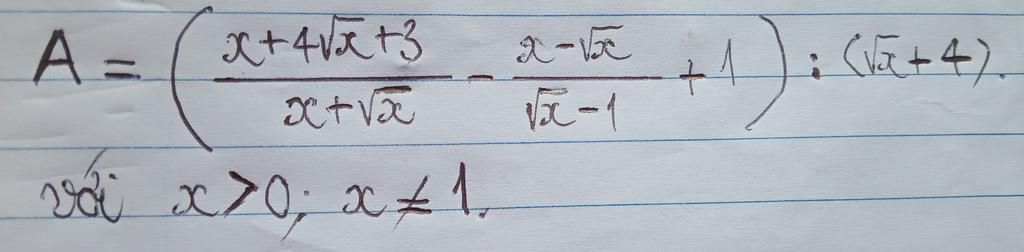 A = ( (x+4√x+3)/(x+√x) - (x-√x)/(√x-1) + 1 ) : (√x+4).
với x>0; x≠1.